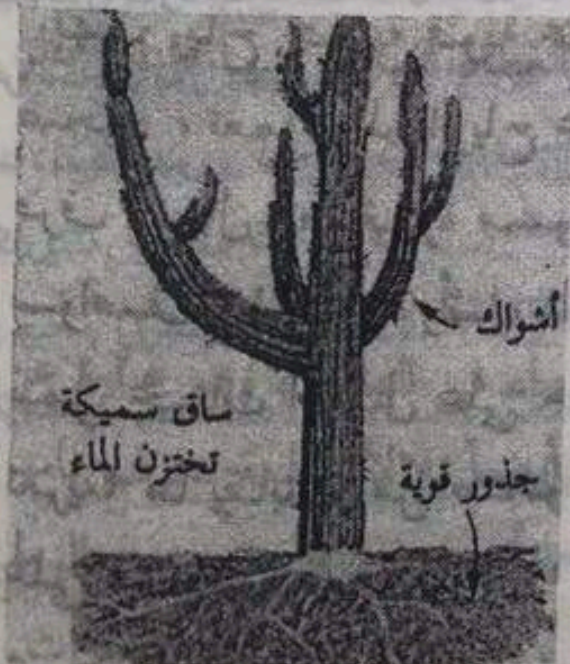 أشواك
ساق سميكة
تختزن الماء
جذور قوية